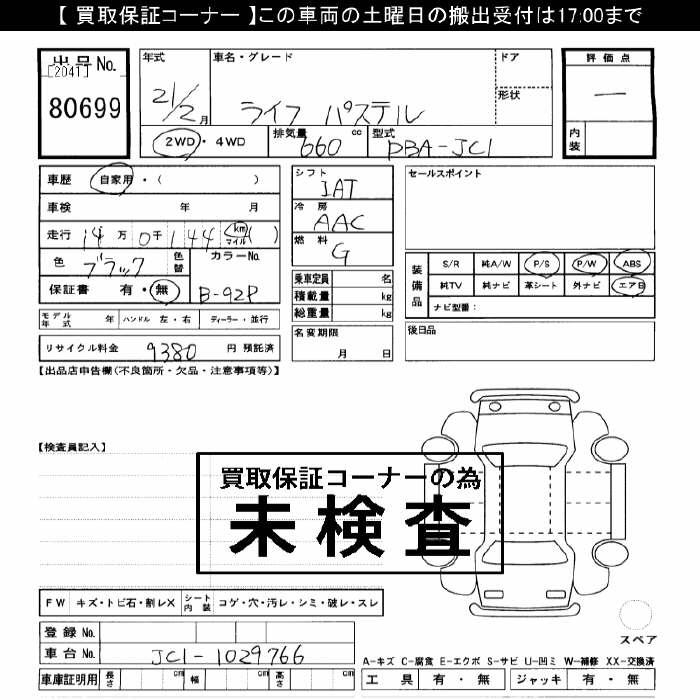 【 買取保証コーナー 】この車両の土曜日の搬出受付は17:00まで
出品No.
[2041]
80699
年式
21/2月
車名・グレード
ライフ パステル
ドア
形状
2WD・4WD
排気量
660 cc
型式
DBA-JC1
評価点
一
内装
車歴 自家用・( )
車検 年 月
走行 14万0千144 km マイル ( )
色 ブラック
色替
カラーNo.
B-92P
保証書 有・無
モデル年式 年 ハンドル 左・右 ディーラー・並行
リサイクル料金 9380 円 預託済
シフト
IAT
冷房
AAC
燃料
G
乗車定員 名
積載量 kg
総重量 kg
名変期限
月 日
セールスポイント
装備品
S/R 純A/W P/S P/W ABS
純TV 純ナビ 革シート 外ナビ エアB
ナビ型番:
後日品
【出品店申告欄(不良箇所・欠品・注意事項等)】
【検査員記入】
買取保証コーナーの為
未検査
FW キズ・トビ石・割レX シート内装 コゲ・穴・汚レ・シミ・破レ・スレ
登録No.
車台No. JC1-1029766
車庫証明用 長さ cm 幅 cm 高さ cm
スペア
A-キズ C-腐食 E-エクボ S-サビ U-凹ミ W-補修 XX-交換済
工具 有・無 ジャッキ 有・無